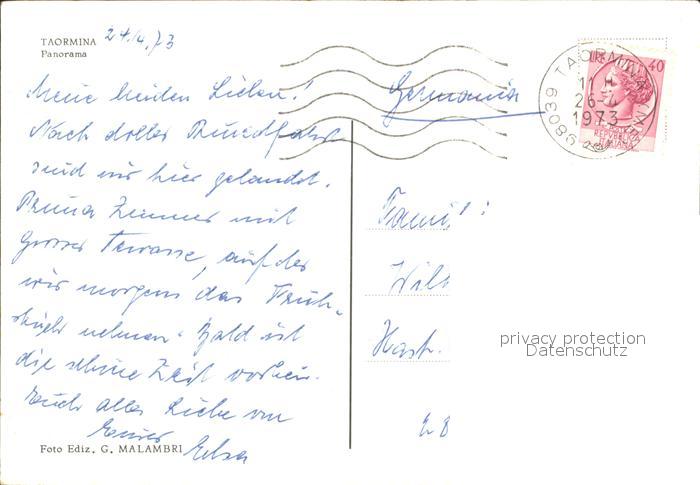 TAORMINA 24.4.73
Panorama
Meine beiden Lieben!
Nach doller Rundfahrt
sind wir hier gelandet.
Prima Zimmer mit
grosser Terrasse, auf der
wir morgens das Früh-
stück nehmen. Bald ist
die schöne Zeit vorbei.
Euch alles Liebe von
Eurer
Foto Ediz. G. MALAMBRI
Germania
98039 TAORMINA
26-4
1973
40
REPUBBLICA
ITALIANA
Fami
Wilh
privacy protection
Datenschutz